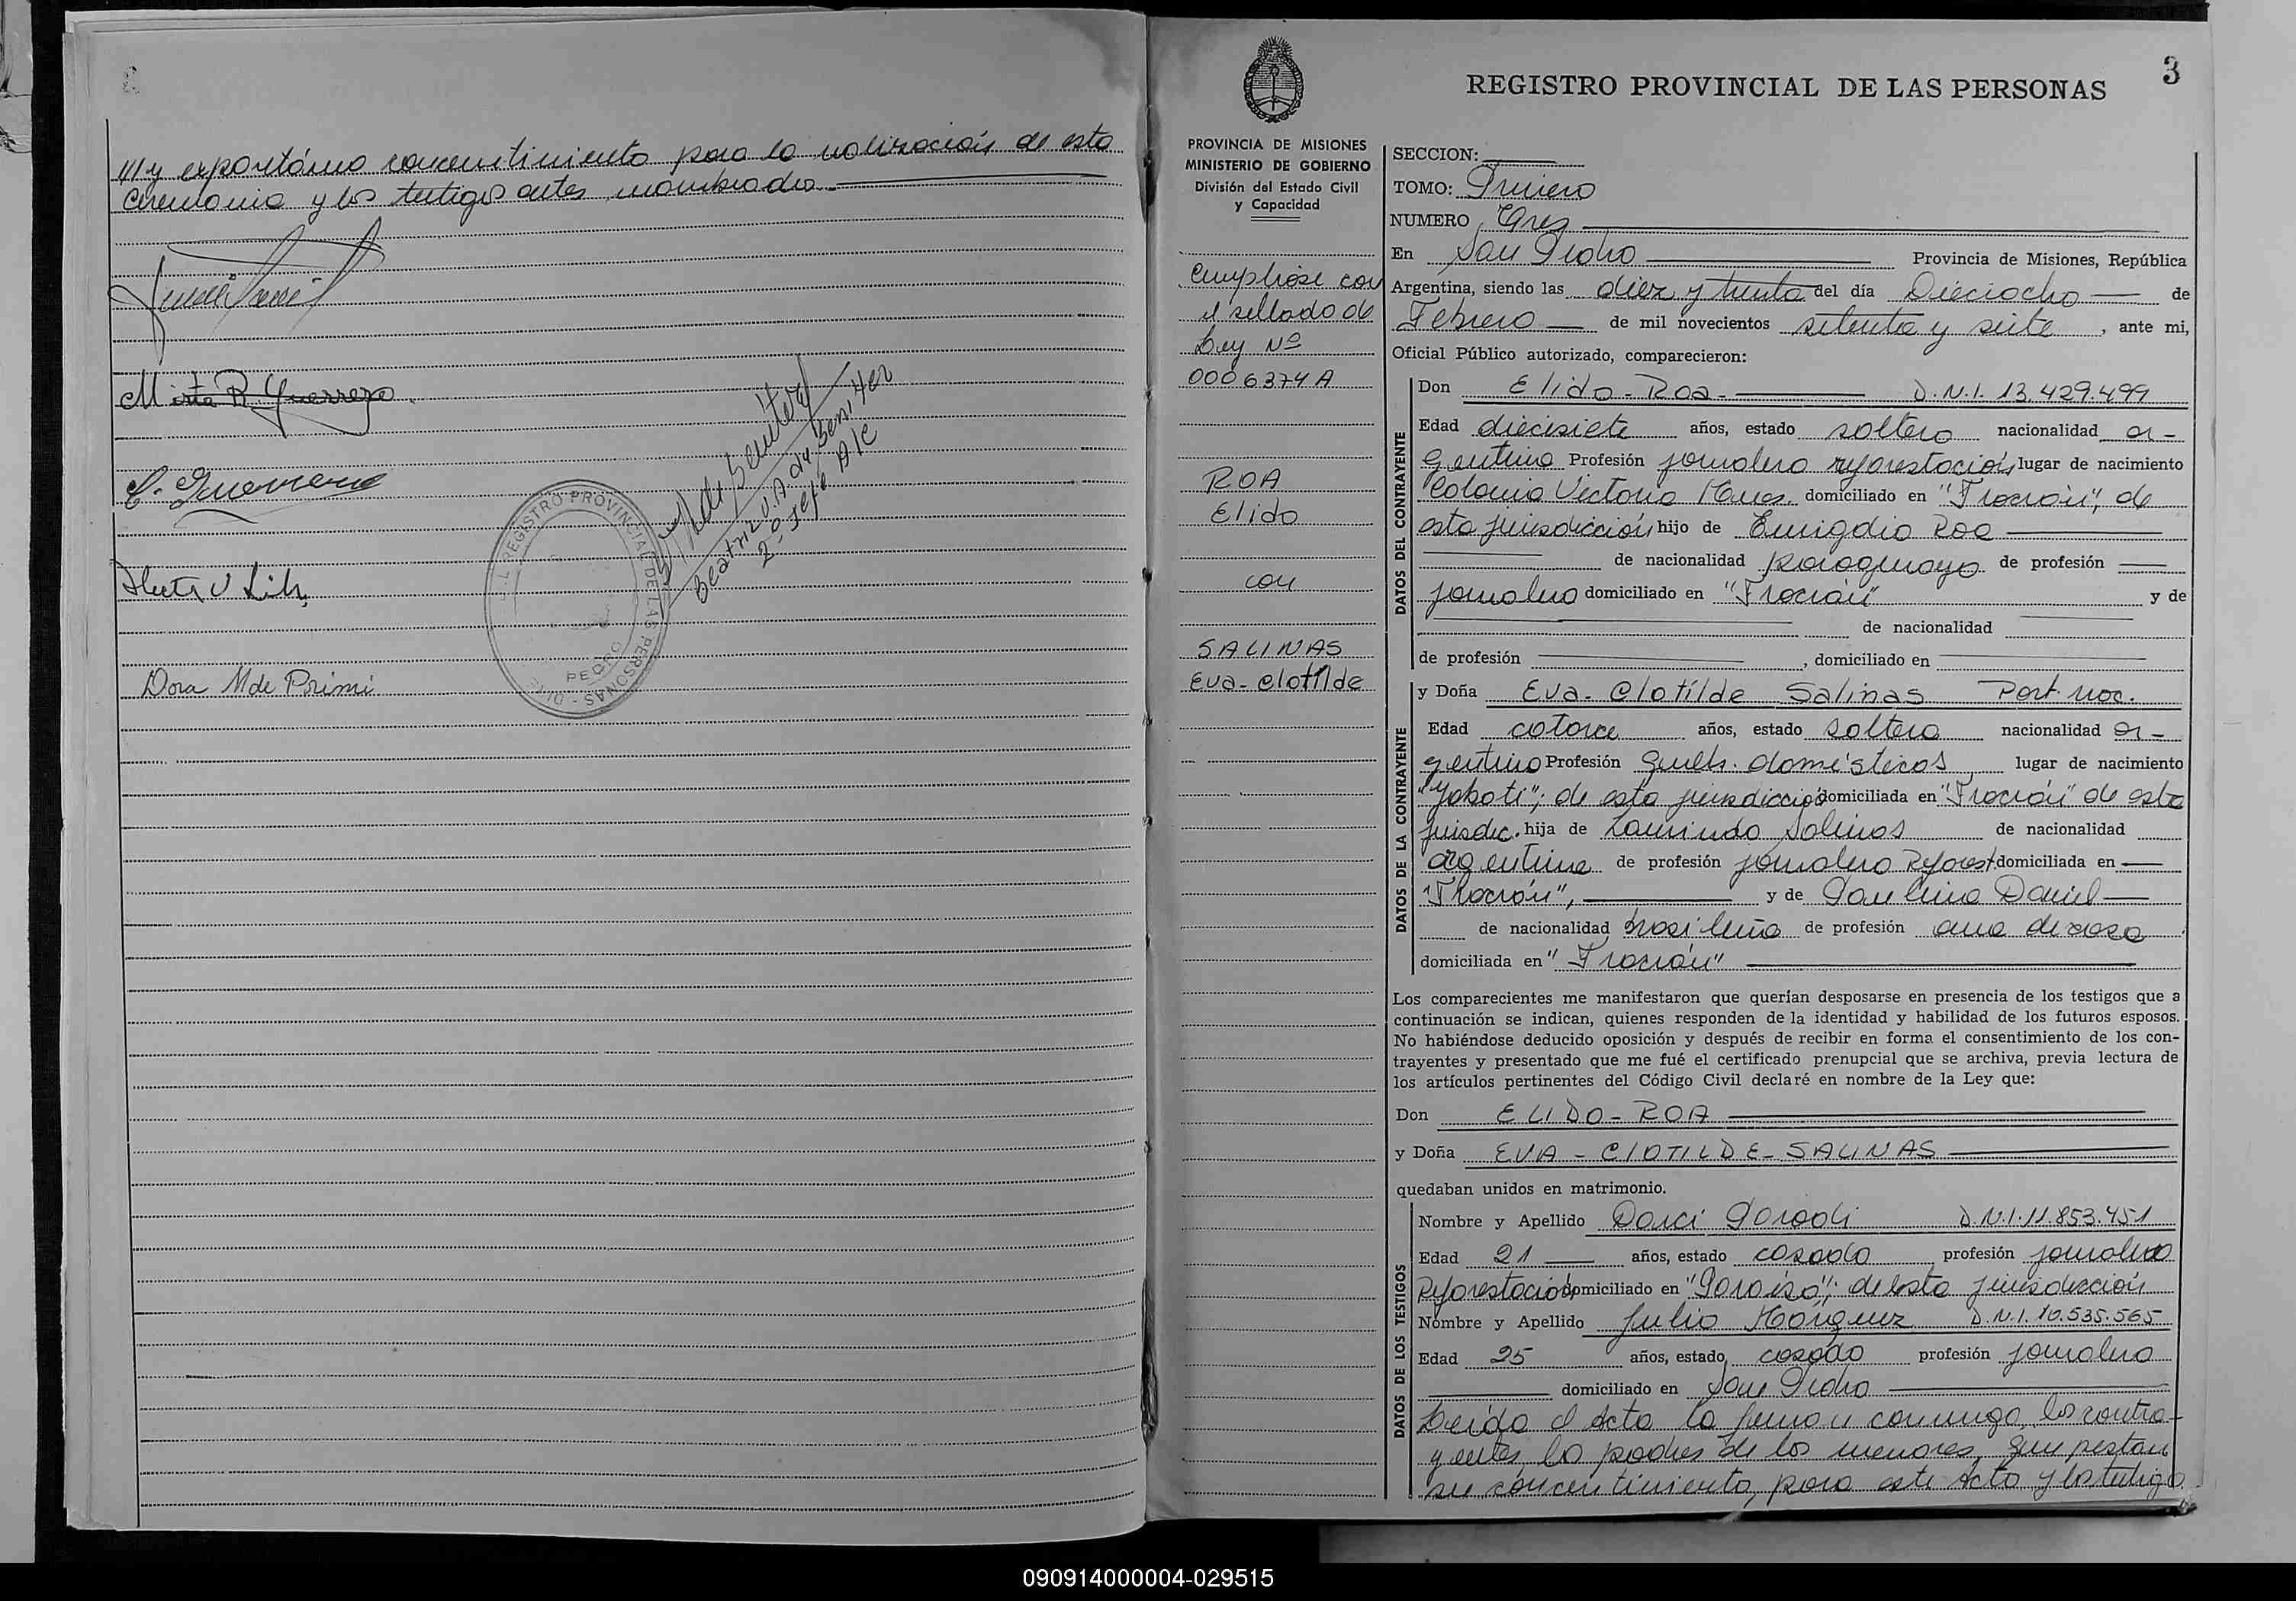 /// y expontáneo concentimiento para la realización de esta
ceremonia y los testigos antes nombrados.
Mirta R. Guerrero
C. Guerrero
Dora M de Primi
REGISTRO PROVINCIAL DE LAS PERSONAS
PEDRO
Beatriz V. A. de Benitez
2º Jefe
3
REGISTRO PROVINCIAL DE LAS PERSONAS
PROVINCIA DE MISIONES
MINISTERIO DE GOBIERNO
División del Estado Civil
y Capacidad
Cumplióse con
el sellado de
Ley Nº
0006374 A
ROA
Elido
con
SALINAS
Eva-Clotilde
SECCION:
TOMO: Primero
NUMERO Tres
En San Pedro Provincia de Misiones, República
Argentina, siendo las diez y treinta del día Dieciocho de
Febrero de mil novecientos setenta y siete, ante mi,
Oficial Público autorizado, comparecieron:
DATOS DEL CONTRAYENTE
Don Elido-Roa- D.N.I. 13.429.499
Edad diecisiete años, estado soltero nacionalidad ar-
gentina Profesión jornalero reforestación lugar de nacimiento
Colonia Victoria Mnes. domiciliado en "Fracrán", de
esta jurisdicción hijo de Emigdio Roa
de nacionalidad paraguayo de profesión
jornalero domiciliado en "Fracrán" y de
de nacionalidad
de profesión , domiciliado en
DATOS DE LA CONTRAYENTE
y Doña Eva-Clotilde Salinas Part. nac.
Edad catorce años, estado soltera nacionalidad ar-
gentina Profesión Queh. domésticos, lugar de nacimiento
"Yabotí"; de esta jurisdicción domiciliada en "Fracrán" de esta
jurisdic. hija de Laurindo Salinas de nacionalidad
argentina de profesión jornalero Reforest. domiciliada en
"Fracrán", y de Paulina Daniel
de nacionalidad brasileña de profesión ama de casa
domiciliada en "Fracrán"
Los comparecientes me manifestaron que querían desposarse en presencia de los testigos que a
continuación se indican, quienes responden de la identidad y habilidad de los futuros esposos.
No habiéndose deducido oposición y después de recibir en forma el consentimiento de los con-
trayentes y presentado que me fué el certificado prenupcial que se archiva, previa lectura de
los artículos pertinentes del Código Civil declaré en nombre de la Ley que:
Don ELIDO-ROA
y Doña EVA-CLOTILDE-SALINAS
quedaban unidos en matrimonio.
DATOS DE LOS TESTIGOS
Nombre y Apellido Darci D.N.I. 11.853.451
Edad 21 años, estado casado profesión jornalero
Reforestación domiciliado en "Paraíso"; de esta jurisdicción
Nombre y Apellido Julio Márquez D.N.I. 10.535.565
Edad 25 años, estado casado profesión jornalero
domiciliado en San Pedro
Leída el Acta la firman conmigo, los contra-
yentes, los padres de los menores, que prestan
su concentimiento, para este Acto y los testigos
090914000004-029515